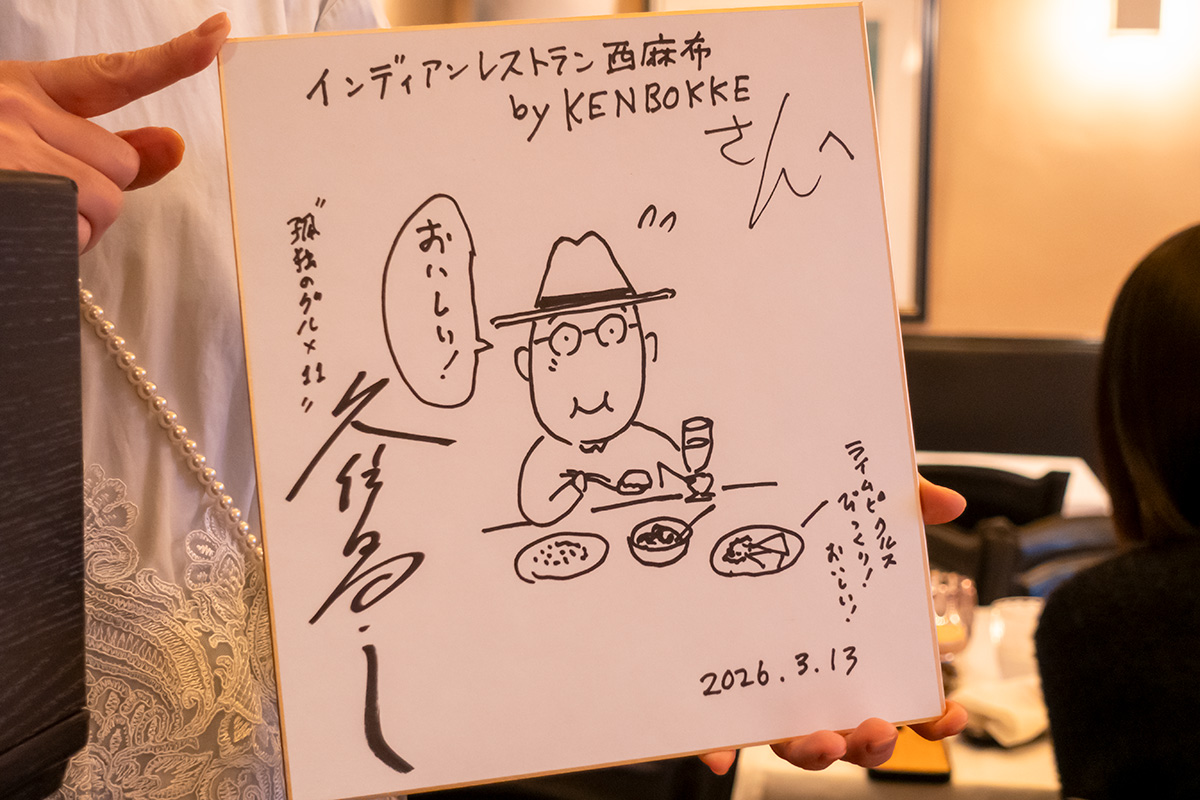 インディアンレストラン西麻布
by KENBOKKE
さんへ
おいしい!
"孤独のグルメ11"
久住昌之
ライムピクルス
びっくり!
おいしい!
2026.3.13